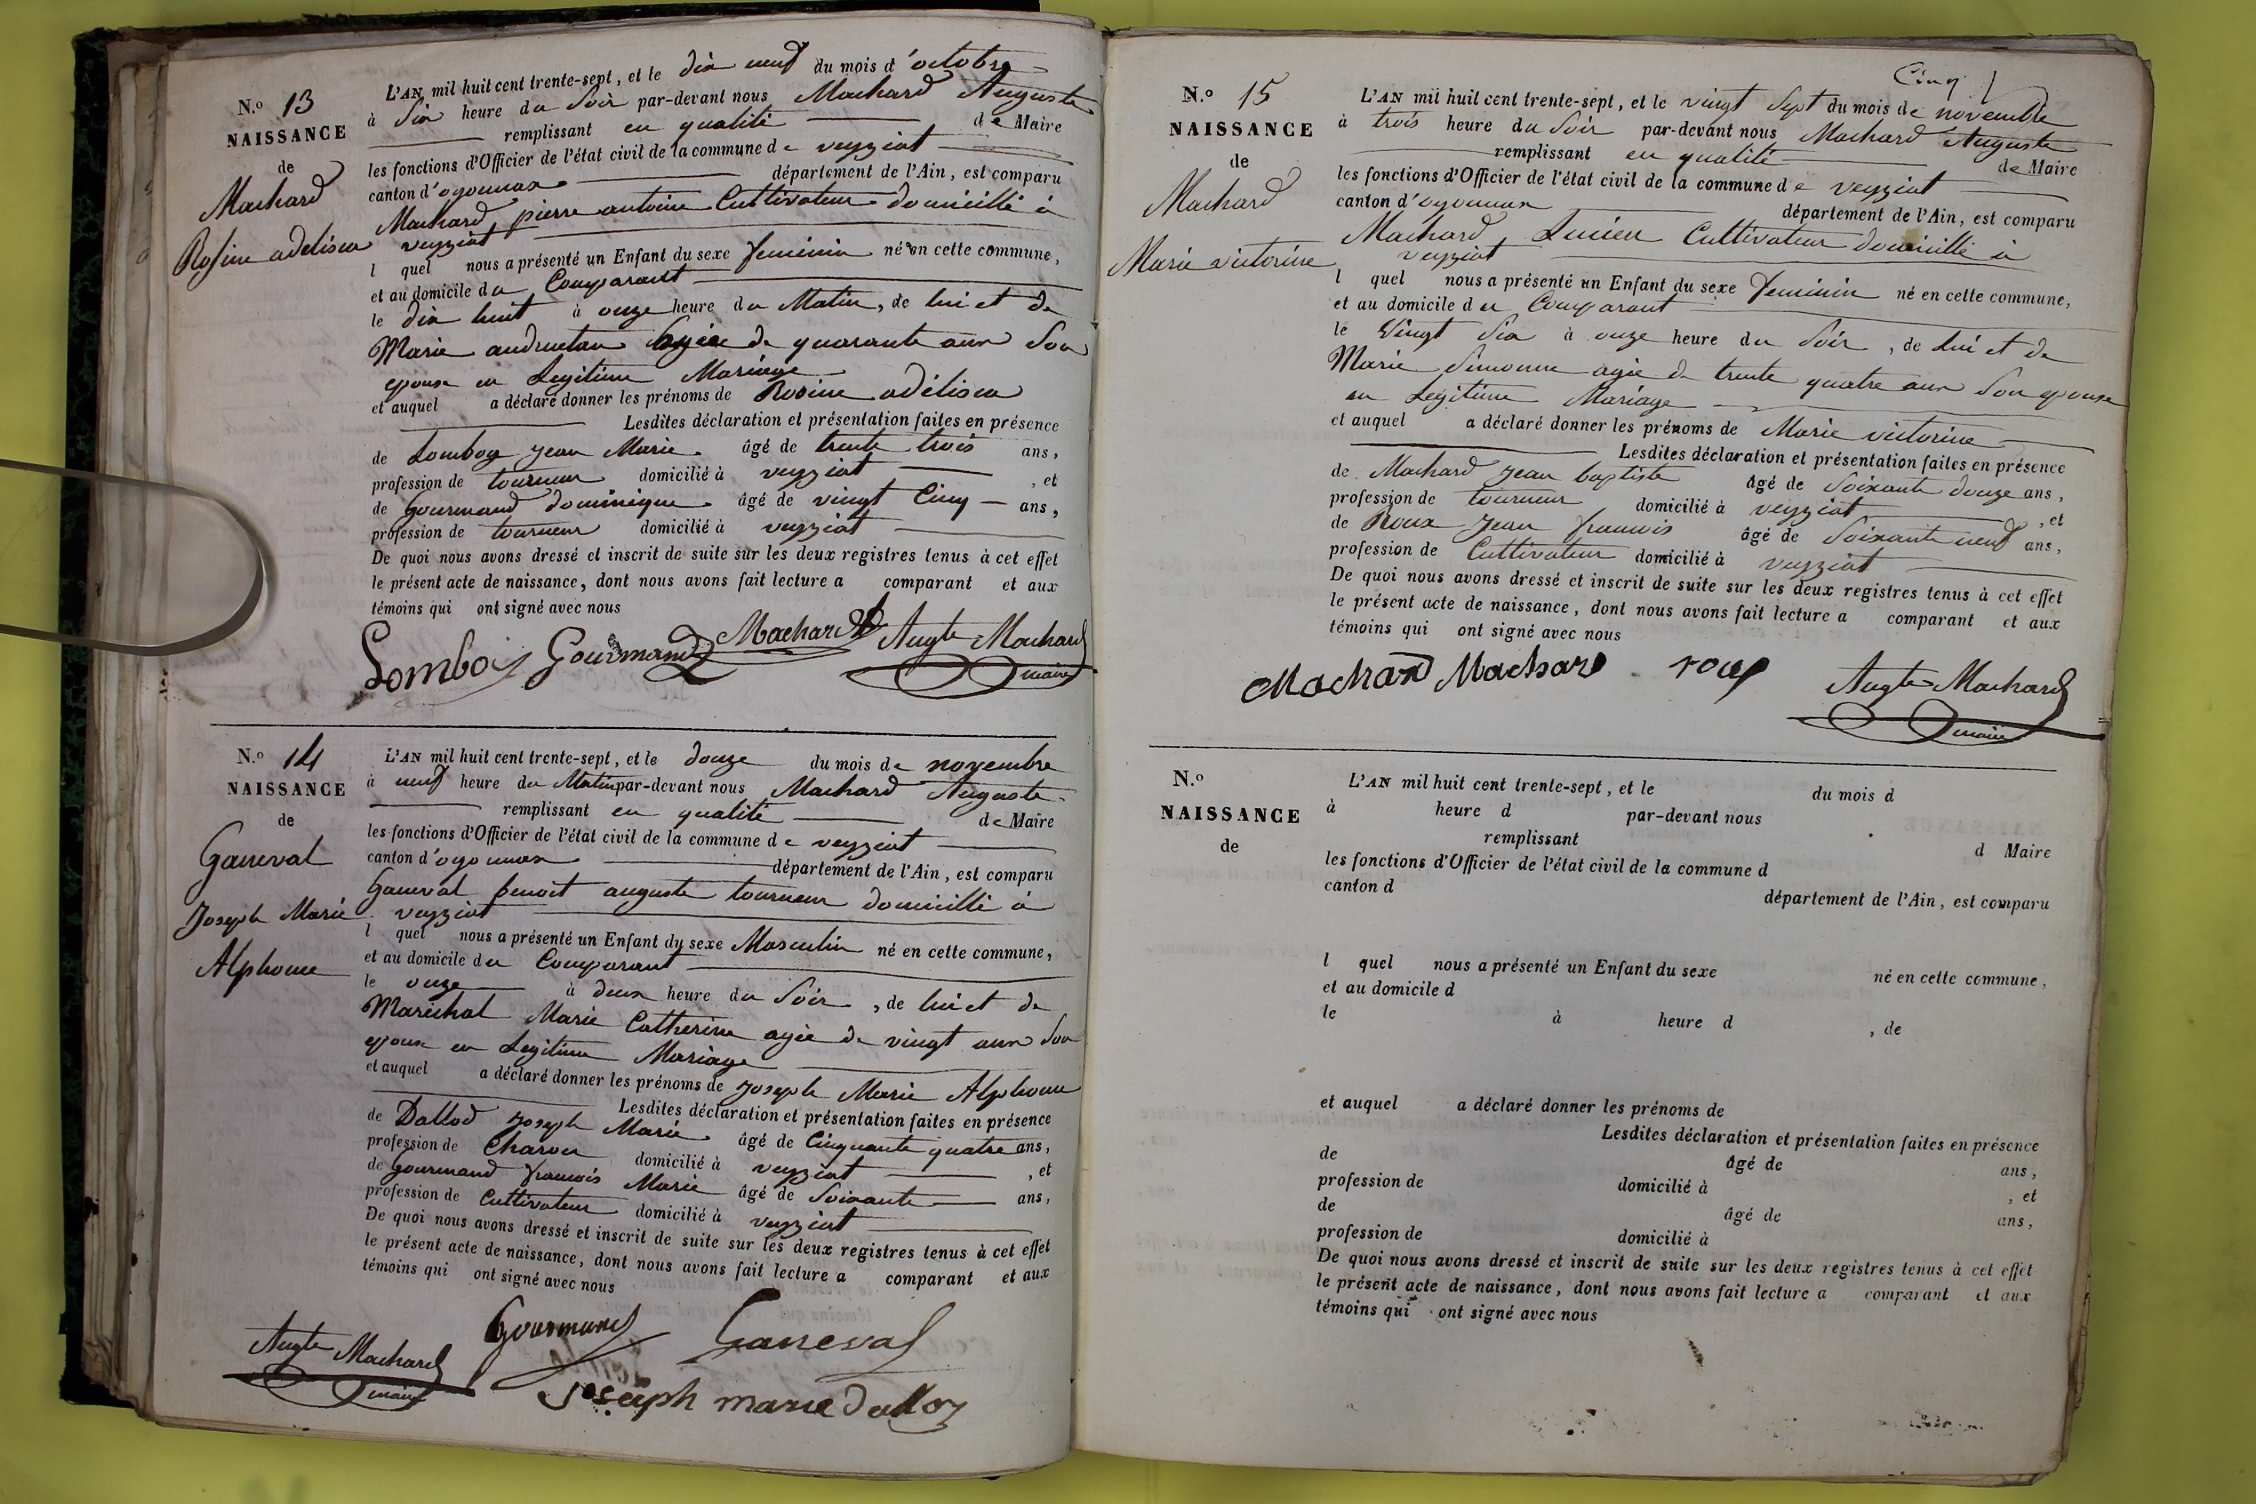 N.º 13
NAISSANCE
de
Machard
Rosine adelisca
L'AN mil huit cent trente-sept, et le dix neuf du mois d'octobre
à Six heure du Soir par-devant nous Machard Auguste
remplissant en qualité de Maire
les fonctions d'Officier de l'état civil de la commune de veyziat
canton d'oyonnax département de l'Ain, est comparu
Machard pierre antoine Cultivateur domicillié à
veyziat
l quel nous a présenté un Enfant du sexe feminin né en cette commune,
et au domicile du Comparant
le dix huit à onze heure du Matin, de lui et de
Marie agée de quarante ans Son
epouse en Legitime Mariage
et auquel a déclaré donner les prénoms de Rosine adélisca
Lesdites déclaration et présentation faites en présence
de Lomboy jean Marie âgé de trente trois ans,
profession de tourneur domicilié à veyziat , et
de Gourmand dominique âgé de vingt Cinq ans,
profession de tourneur domicilié à veyziat
De quoi nous avons dressé et inscrit de suite sur les deux registres tenus à cet effet
le présent acte de naissance, dont nous avons fait lecture a comparant et aux
témoins qui ont signé avec nous
Lomboy Gourmand Machard Augte Machard
maire
N.º 14
NAISSANCE
de
Ganeval
Joseph Marie
Alphonse
L'AN mil huit cent trente-sept, et le douze du mois de novembre
à neuf heure du Matin par-devant nous Machard Auguste
remplissant en qualité de Maire
les fonctions d'Officier de l'état civil de la commune de veyziat
canton d'oyonnax département de l'Ain, est comparu
Ganeval benoit auguste tourneur domicillié à
veyziat
l quel nous a présenté un Enfant du sexe Masculin né en cette commune,
et au domicile du Comparant
le onze à deux heure du Soir, de lui et de
Maréchal Marie Catherine agée de vingt ans Son
epouse en Legitime Mariage
et auquel a déclaré donner les prénoms de Joseph Marie Alphonse
Lesdites déclaration et présentation faites en présence
de Dallod Joseph Marie âgé de Cinquante quatre ans,
profession de Charon domicilié à veyziat , et
de Gourmand francois Marie âgé de Soixante ans,
profession de Cultivateur domicilié à veyziat
De quoi nous avons dressé et inscrit de suite sur les deux registres tenus à cet effet
le présent acte de naissance, dont nous avons fait lecture a comparant et aux
témoins qui ont signé avec nous
Augte Machard Gourmand Ganeval
maire
Joseph marie dalloz
Cinq
N.º 15
NAISSANCE
de
Machard
Marie victorine
L'AN mil huit cent trente-sept, et le vingt Sept du mois de novembre
à trois heure du Soir par-devant nous Machard Auguste
remplissant en qualité de Maire
les fonctions d'Officier de l'état civil de la commune de veyziat
canton d'oyonnax département de l'Ain, est comparu
Machard Lucien Cultivateur domicillié à
veyziat
l quel nous a présenté un Enfant du sexe feminin né en cette commune,
et au domicile du Comparant
le Vingt Six à onze heure du Soir, de lui et de
Marie Simonne agée de trente quatre ans Son epouse
en Legitime Mariage
et auquel a déclaré donner les prénoms de Marie victorine
Lesdites déclaration et présentation faites en présence
de Machard jean baptiste âgé de Soixante douze ans,
profession de tourneur domicilié à veyziat , et
de Roux jean francois âgé de Soixante neuf ans,
profession de Cultivateur domicilié à veyziat
De quoi nous avons dressé et inscrit de suite sur les deux registres tenus à cet effet
le présent acte de naissance, dont nous avons fait lecture a comparant et aux
témoins qui ont signé avec nous
Machard Machard roux Augte Machard
maire
N.º
NAISSANCE
de
L'AN mil huit cent trente-sept, et le du mois d
à heure d par-devant nous
remplissant d Maire
les fonctions d'Officier de l'état civil de la commune d
canton d département de l'Ain, est comparu
l quel nous a présenté un Enfant du sexe né en cette commune,
et au domicile d
le à heure d , de
et auquel a déclaré donner les prénoms de
Lesdites déclaration et présentation faites en présence
de âgé de ans,
profession de domicilié à , et
de âgé de ans,
profession de domicilié à
De quoi nous avons dressé et inscrit de suite sur les deux registres tenus à cet effet
le présent acte de naissance, dont nous avons fait lecture a comparant et aux
témoins qui ont signé avec nous